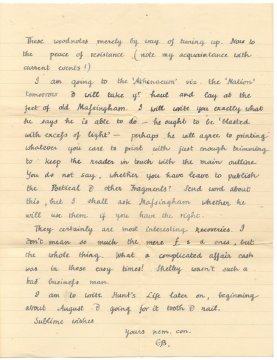 These woodnotes merely by way of tuning up. Now to
the peace of resistance. (note my acquaintance with
current events!)
I am going to the 'Athenaeum' via the 'Nation'
tomorrow & will take yr howl and lay at the
feet of old Massingham. I will write you exactly what
he says he is able to do — he ought to be 'blasted
with excess of light' — perhaps he will agree to printing
whatever you care to print with just enough trimming
to keep the reader in touch with the main outline.
You do not say, whether you have leave to publish
the Poetical & other Fragments? Send word about
this, but I shall ask Massingham whether he
will use them if you have the right.
They certainly are most interesting recoveries. I
don't mean so much the mere £ s d ones, but
the whole thing. What a complicated affair cash
was in those easy times! Shelley wasn't such a
bad business man.
I am to write Hunt's Life later on, beginning
about August & going for it tooth & nail.
Sublime wishes
Yours nem. con.
EB.